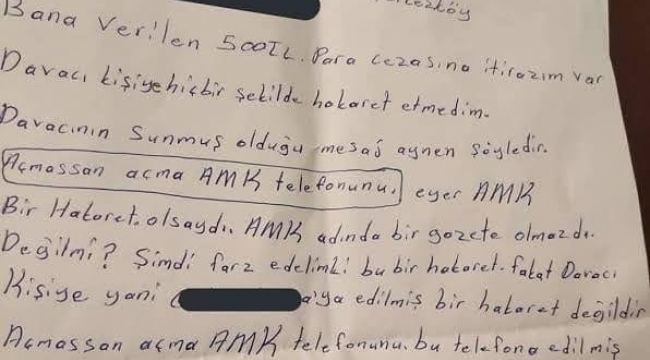 Bana Verilen 500TL. Para cezasına itirazım var
Davacı kişiye hiçbir şekilde hakaret etmedim.
Davacının sunmuş olduğu mesaj aynen şöyledir.
Açmassan açma AMK telefonunu. eyer AMK
Bir Hakaret olsaydı. AMK adında bir gazete olmazdı.
Değilmi? Şimdi farz edelimki bu bir hakaret. fakat Davacı
Kişiye yani a'ya edilmiş bir hakaret değildir
Açmassan açma AMK telefonunu. bu telefona edilmiş